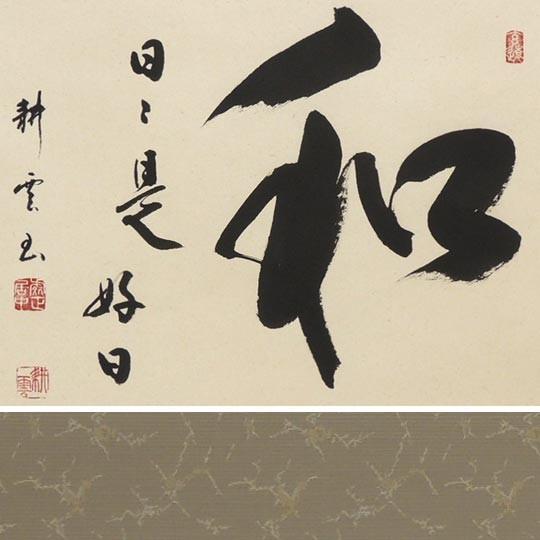 和
日々是好日
耕雲書
耕雲